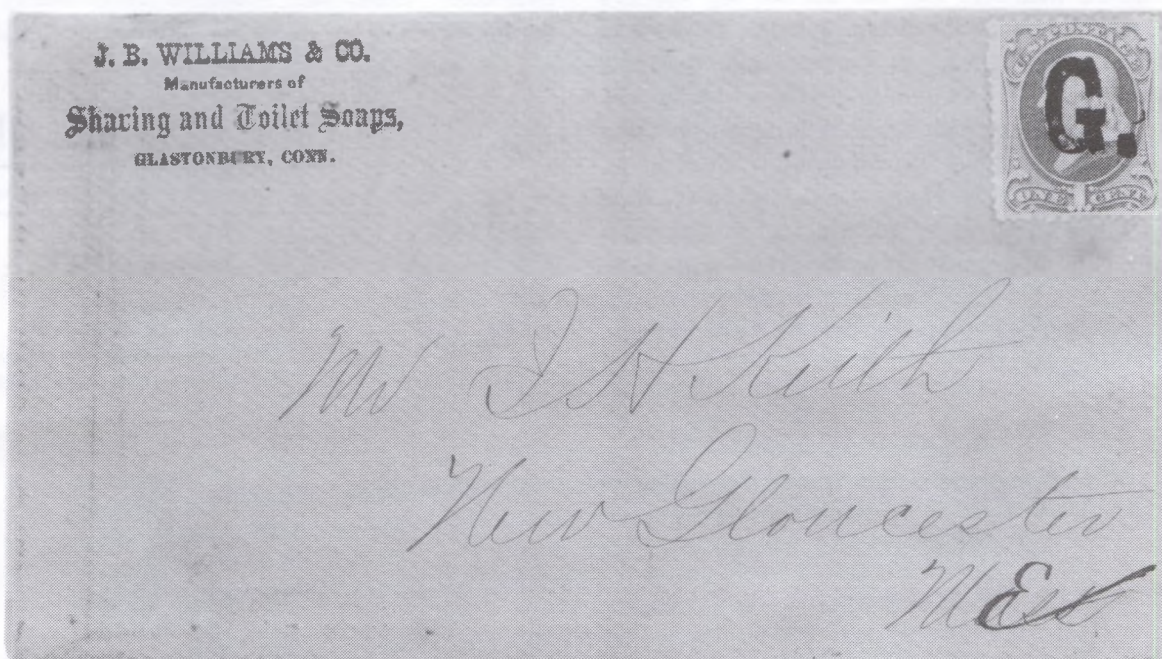 J. B. WILLIAMS & CO.
Manufacturers of
Shaving and Toilet Soaps,
GLASTONBURY, CONN.
G.
Mr I H Keith
New Gloucester
ME